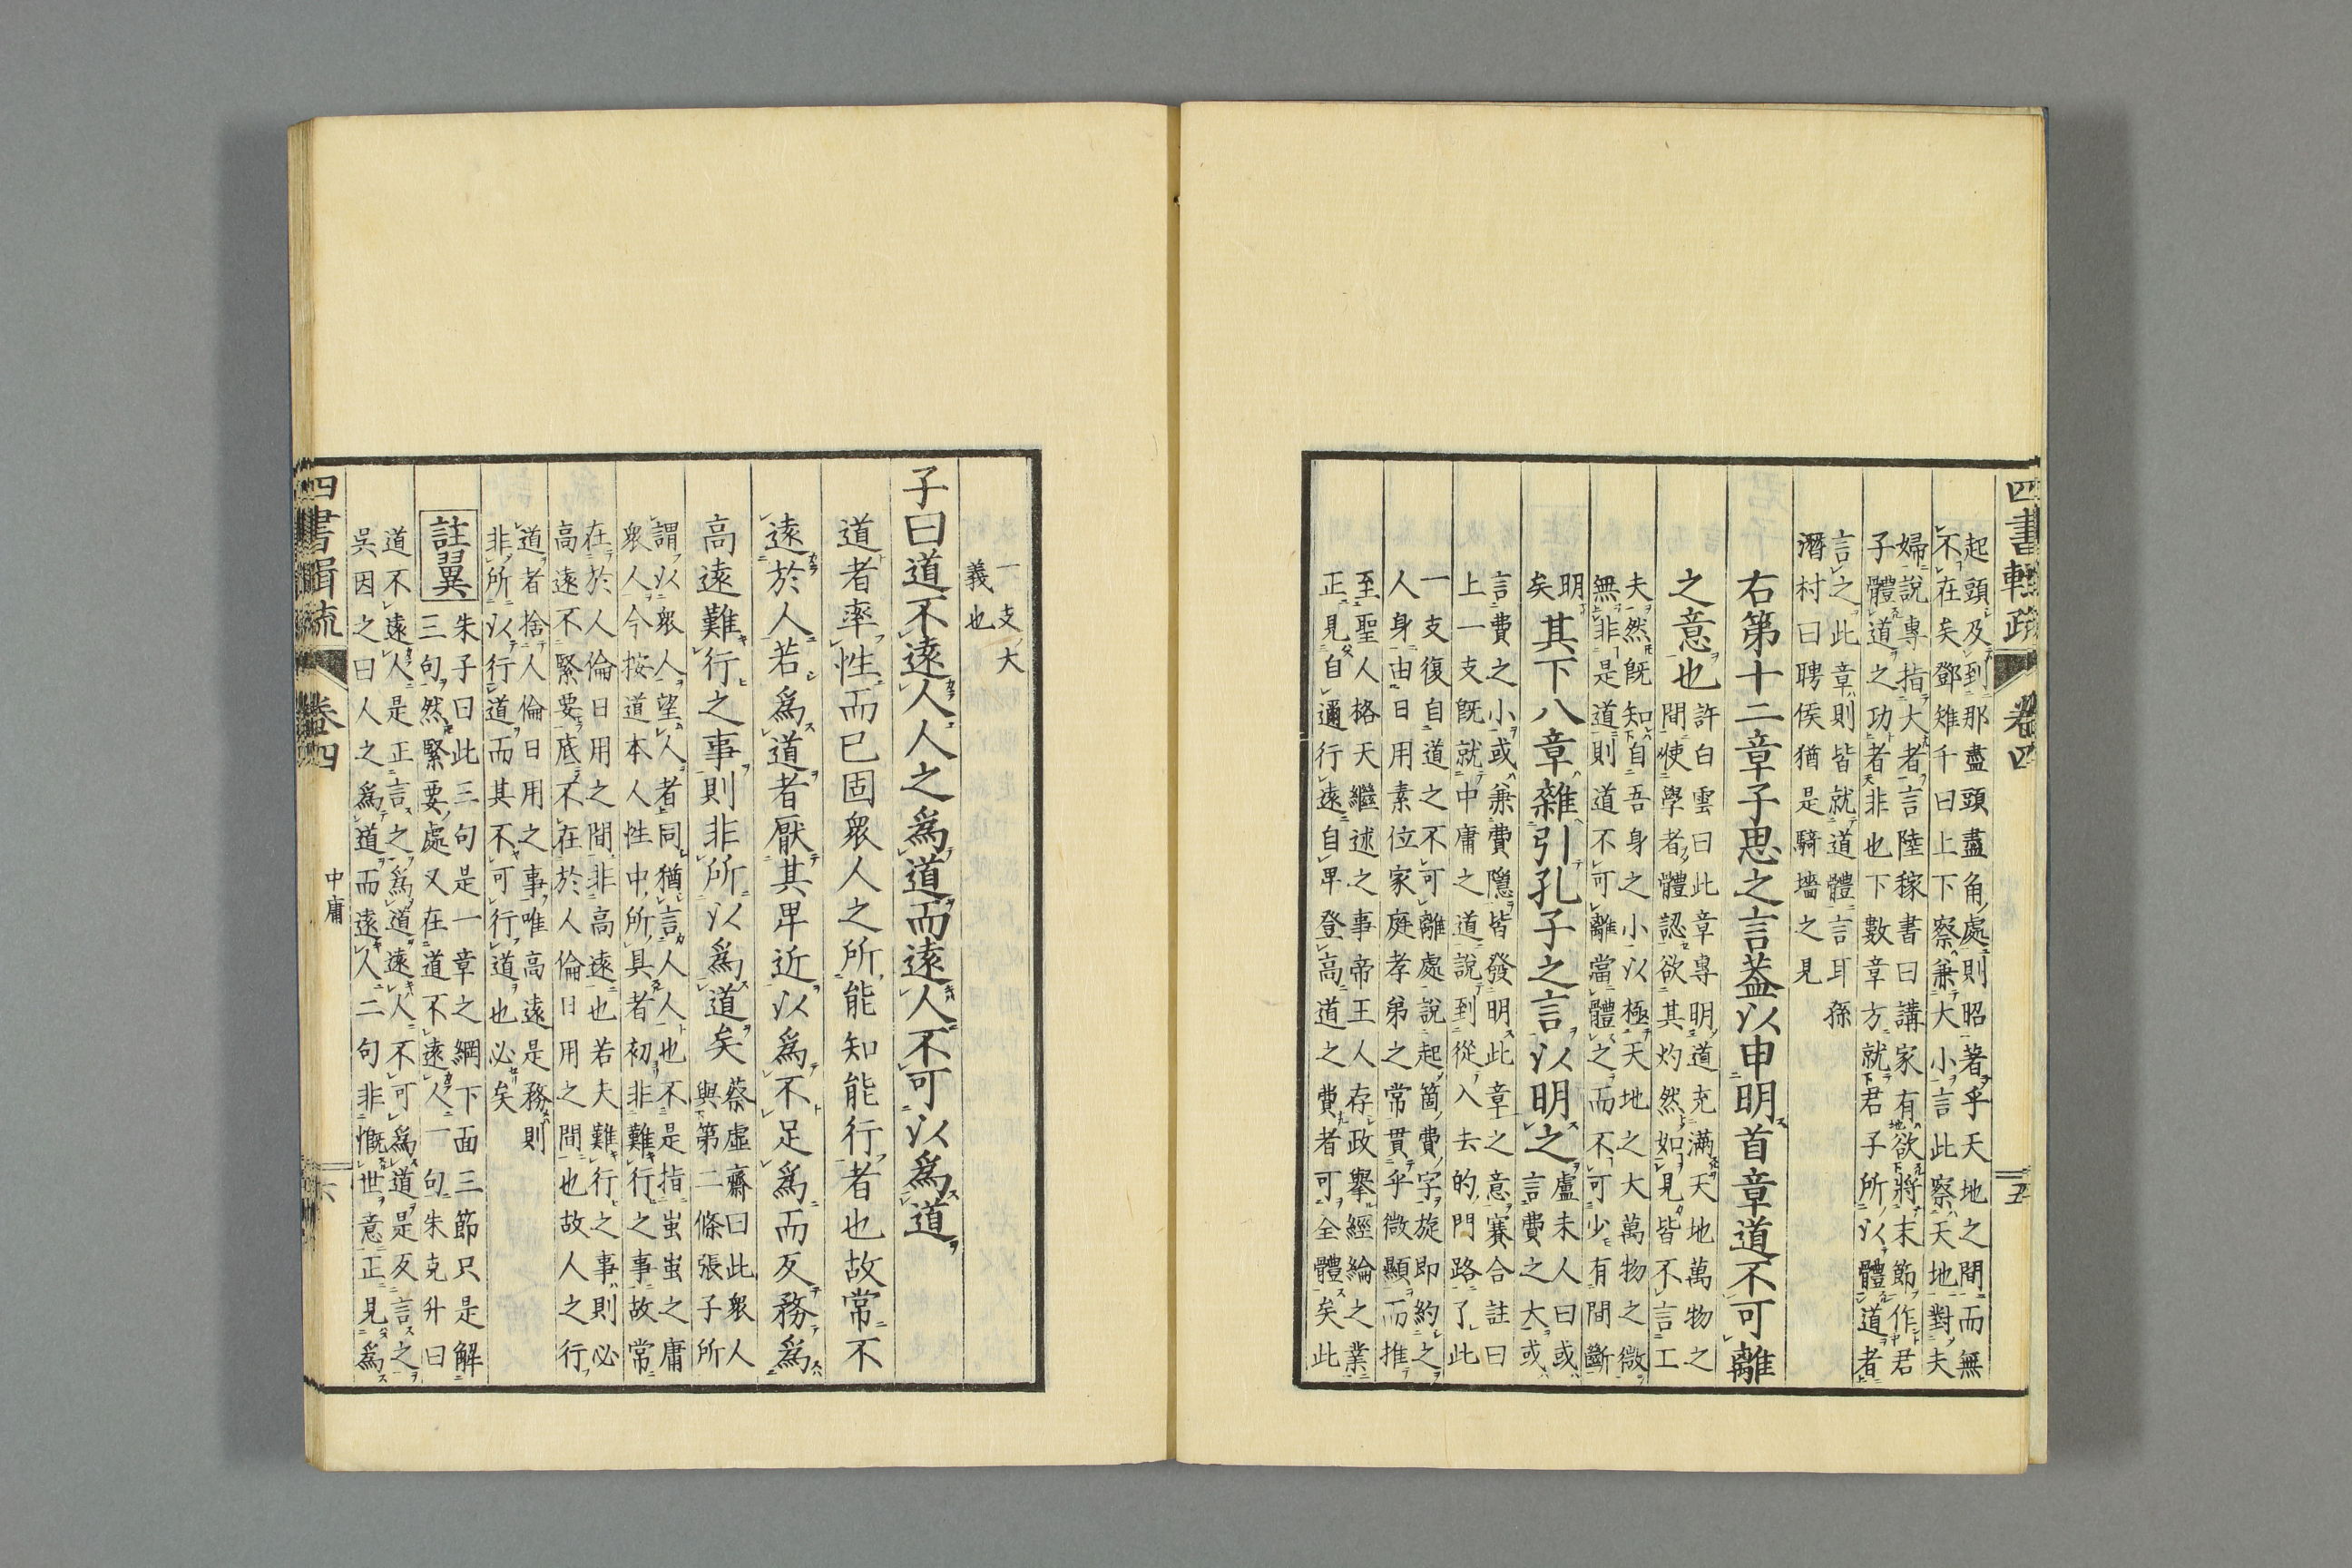 四書輯疏
卷四
五
起頭及到那盡頭盡角處則昭著乎天地之間而無
不在矣鄧雉千曰上下察兼大小言此察天地對夫
婦說專指大者言陸稼書曰講家有欲將末節作君
子體道之功者非也下數章方就君子所以體道者
言之此章則皆就道體言耳孫
潛村曰聘侯猶是騎墻之見
右第十二章子思之言蓋以申明首章道不可離
之意也
許白雲曰此章專明道充滿天地萬物之
間使學者體認欲其灼然如見皆不言工
夫然既知自吾身之小以極天地之大萬物之微
無非是道則道不可離當體之而不可少有間斷
明
矣
其下八章雜引孔子之言以明之
盧未人曰或
言費之大或
言費之小或兼費隱皆發明此章之意賽合註曰
上一支既就中庸之道說到從入去的門路了此
一支復自道之不可離處說起箇費字旋即約之
人身由日用素位家庭孝弟之常貫乎微顯而推
至聖人格天繼述之事帝王人存政擧經綸之業
正見自邇行遠自卑登高道之費者可全體矣此
一支大
義也
子曰道不遠人人之爲道而遠人不可以爲道
道者率性而已固衆人之所能知能行者也故常不
遠於人若爲道者厭其卑近以爲不足爲而反務爲
高遠難行之事則非所以爲道矣
蔡虛齋曰此衆人
與第二條張子所
謂以衆人望人者同猶言人人也不是指蚩蚩之庸
衆人今按道本人性中所具者初非難行之事故常
在於人倫日用之間非高遠也若夫難行之事則必
高遠不緊要底不在於人倫日用之間也故人之行
道者捨人倫日用之事唯高遠是務則
非所以行道而其不可行道也必矣
註翼
朱子曰此三句是一章之綱下面三節只是解
三句然緊要處又在道不遠人一句朱克升曰
道不遠人是正言之爲道遠人不可爲道是反言之
吳因之曰人之爲道而遠人二句非慨世意正見爲
四書輯疏
卷四
中庸
六